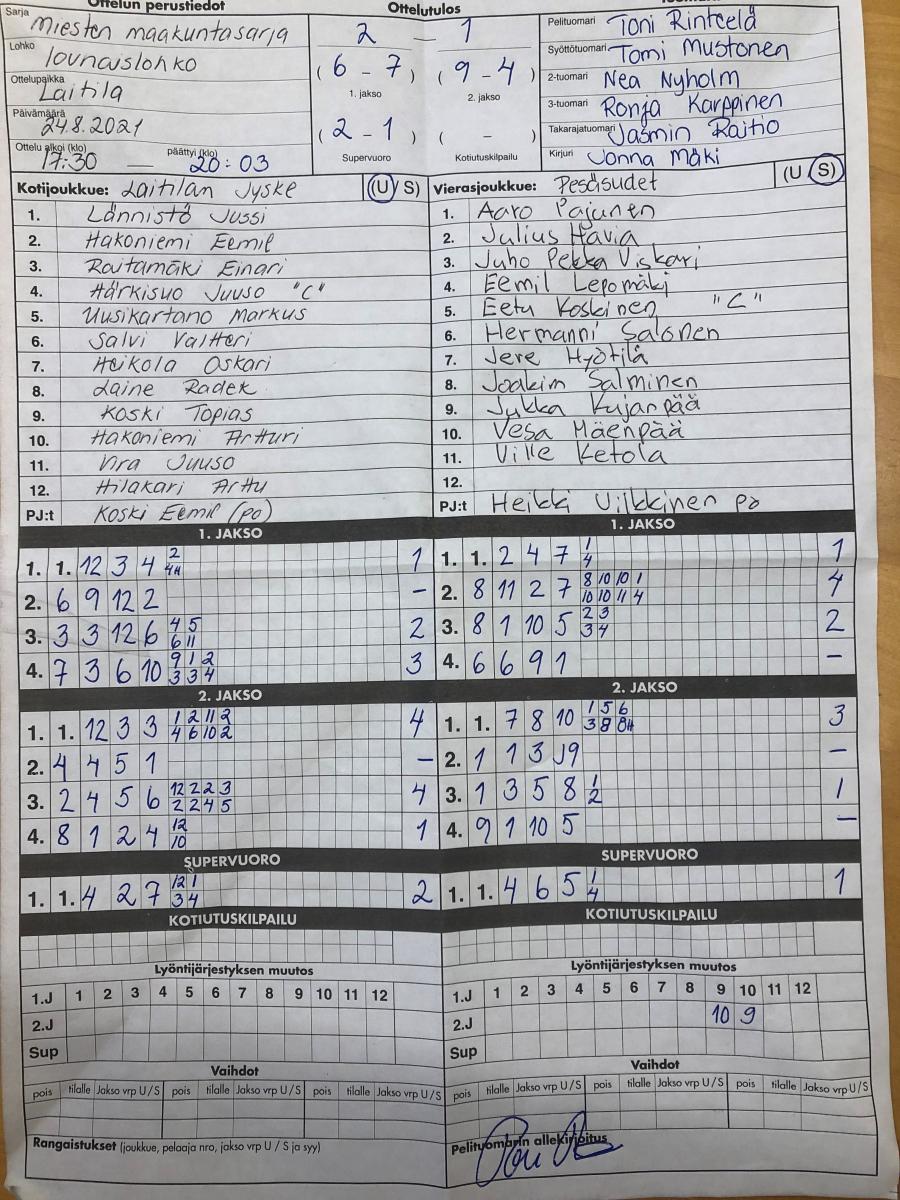 Ottelun perustiedot
Sarja
Miesten maakuntasarja
Lohko
lounaislohko
Ottelupaikka
Laitila
Päivämäärä
24.8.2021
Ottelu alkoi (klo) päättyi (klo)
17:30 — 20:03
Ottelutulos
2 — 1
(6 - 7) (9 - 4)
1. jakso 2. jakso
(2 - 1) ( - )
Supervuoro Kotiutuskilpailu
Pelituomari Toni Rinteelä
Syöttötuomari Tomi Mustonen
2-tuomari Nea Nyholm
3-tuomari Ronja Karppinen
Takarajatuomari Jasmin Raitio
Kirjuri Jonna Mäki
Kotijoukkue: Laitilan Jyske (U/S)
1. Lännistö Jussi
2. Hakoniemi Eemil
3. Raitamäki Einari
4. Härkisuo Juuso "C"
5. Uusikartano Markus
6. Salvi Valtteri
7. Heikola Oskari
8. Laine Radek
9. Koski Topias
10. Hakoniemi Artturi
11. Vira Juuso
12. Hilakari Arttu
PJ:t Koski Eemil (po)
Vierasjoukkue: Pesäsudet (U/S)
1. Aaro Pajunen
2. Julius Havia
3. Juho Pekka Viskari
4. Eemil Lepomäki
5. Eetu Koskinen "C"
6. Hermanni Salonen
7. Jere Hyötilä
8. Joakim Salminen
9. Jukka Kujanpää
10. Vesa Mäenpää
11. Ville Ketola
12.
PJ:t Heikki Vilkkinen po
1. JAKSO
1. 1. 12 3 4 2/4H 1
2. 6 9 12 2 -
3. 3 3 12 6 4/6 5/11 2
4. 7 3 6 10 9/3 1/3 2/4 3
2. JAKSO
1. 1. 12 3 3 1/4 2/6 11/10 2/2 4
2. 4 4 5 1 -
3. 2 4 5 6 12/2 2/2 2/4 3/5 4
4. 8 1 2 4 12/10 1
SUPERVUORO
1. 1. 4 2 7 12/3 1/4 2
KOTIUTUSKILPAILU
1. JAKSO
1. 1. 2 4 7 1/4 1
2. 8 11 2 7 8/10 10/10 10/11 1/4 4
3. 8 1 10 5 2/3 3/4 2
4. 6 6 9 1 -
2. JAKSO
1. 1. 7 8 10 1/3 5/8 6/8H 3
2. 1 1 3 J9 -
3. 1 3 5 8 1/2 1
4. 9 1 10 5 -
SUPERVUORO
1. 1. 4 6 5 1/4 1
KOTIUTUSKILPAILU
Lyöntijärjestyksen muutos
1.J 1 2 3 4 5 6 7 8 9 10 11 12
2.J
Sup
Lyöntijärjestyksen muutos
1.J 1 2 3 4 5 6 7 8 9 10 11 12
2.J 10 9
Sup
Vaihdot
pois tilalle Jakso vrp U/S pois tilalle Jakso vrp U/S pois tilalle Jakso vrp U/S
Vaihdot
pois tilalle Jakso vrp U/S pois tilalle Jakso vrp U/S pois tilalle Jakso vrp U/S
Rangaistukset (joukkue, pelaaja nro, jakso vrp U / S ja syy)
Pelituomarin allekirjoitus